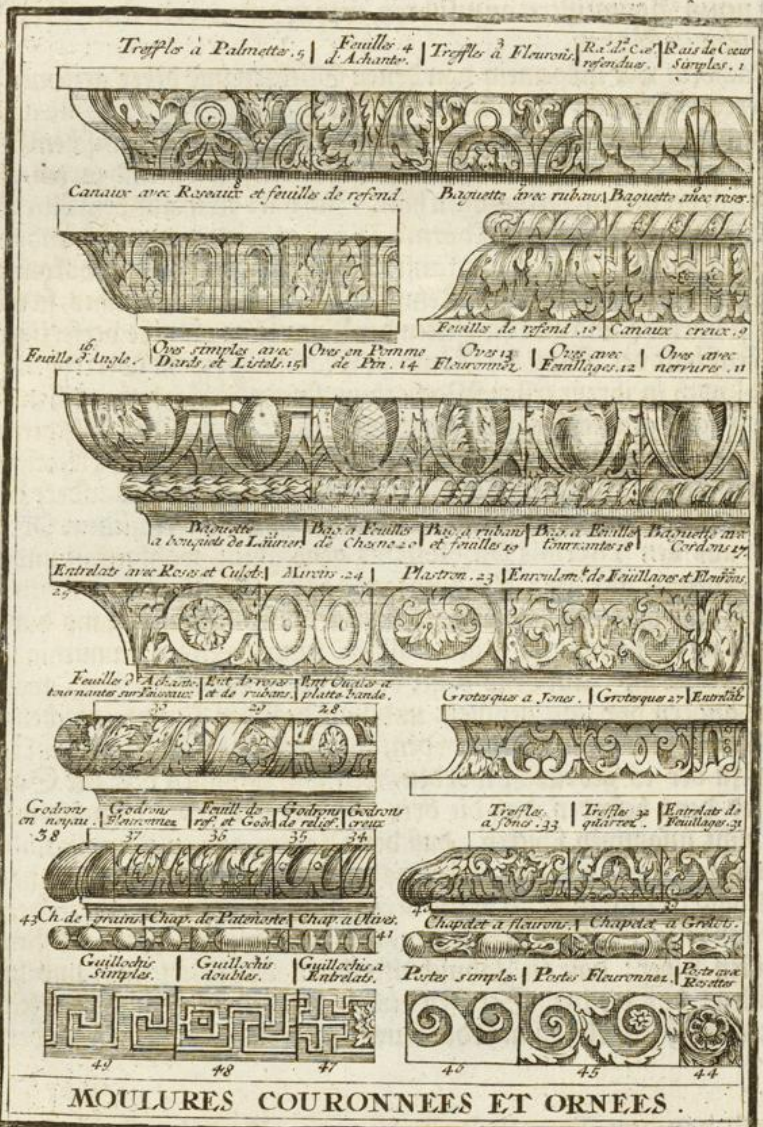 Treffles à Palmettes. 5 | Feuilles 4 d'Achante. | Treffles à 3 Fleurons. | Ra. de Cœ. refendues. | Rais de Cœur Simples. 1
Canaux avec Roseaux et feuilles de refend. 8
Baguette avec rubans. | Baguette avec roses.
Feuilles de refend. 10 | Canaux creux. 9
Feuille d'Angle. 16 | Oves simples avec Dards et Listels. 15 | Oves en Pomme de Pin. 14 | Oves 13 Fleuronnez | Oves avec Feuillages. 12 | Oves avec nervures. 11
Baguette a bouquets de Laurier. | Bag. a Feuilles de Chesne 20 | Bag. a rubans et feuilles 19 | Bag. a Feuille tournantes 18 | Baguette avec Cordons 17
Entrelats avec Roses et Culots. | Miroirs. 24 | Plastron. 23 | Enroulem.t de Feuillages et Fleurons. 22
25
Feuilles d'Achante tournantes sur Faisceaux | Ent. de roses et de rubans. | Ent. Ovales a platte bande.
30 29 28
Grotesques a Joncs. | Grotesques 27 | Entrelats
Godrons en noyau. | Godrons Fleuronnez | Feuill. de ref. et Godr. | Godrons de relief. | Godrons creux
38 37 36 35 34
Treffles a Joncs. 33 | Treffles 32 quarrez. | Entrelats de Feuillages. 31
40 39
43 Ch. de grains | Chap. de Patenoste | Chap. a Olives.
41
Chapelet a fleurons. | Chapelet a Grelots.
Guillochis Simples. | Guillochis doubles. | Guillochis a Entrelats.
49 48 47
Postes simples. | Postes Fleuronnez. | Poste avec Rosettes
46 45 44
MOULURES COURONNEES ET ORNEES.